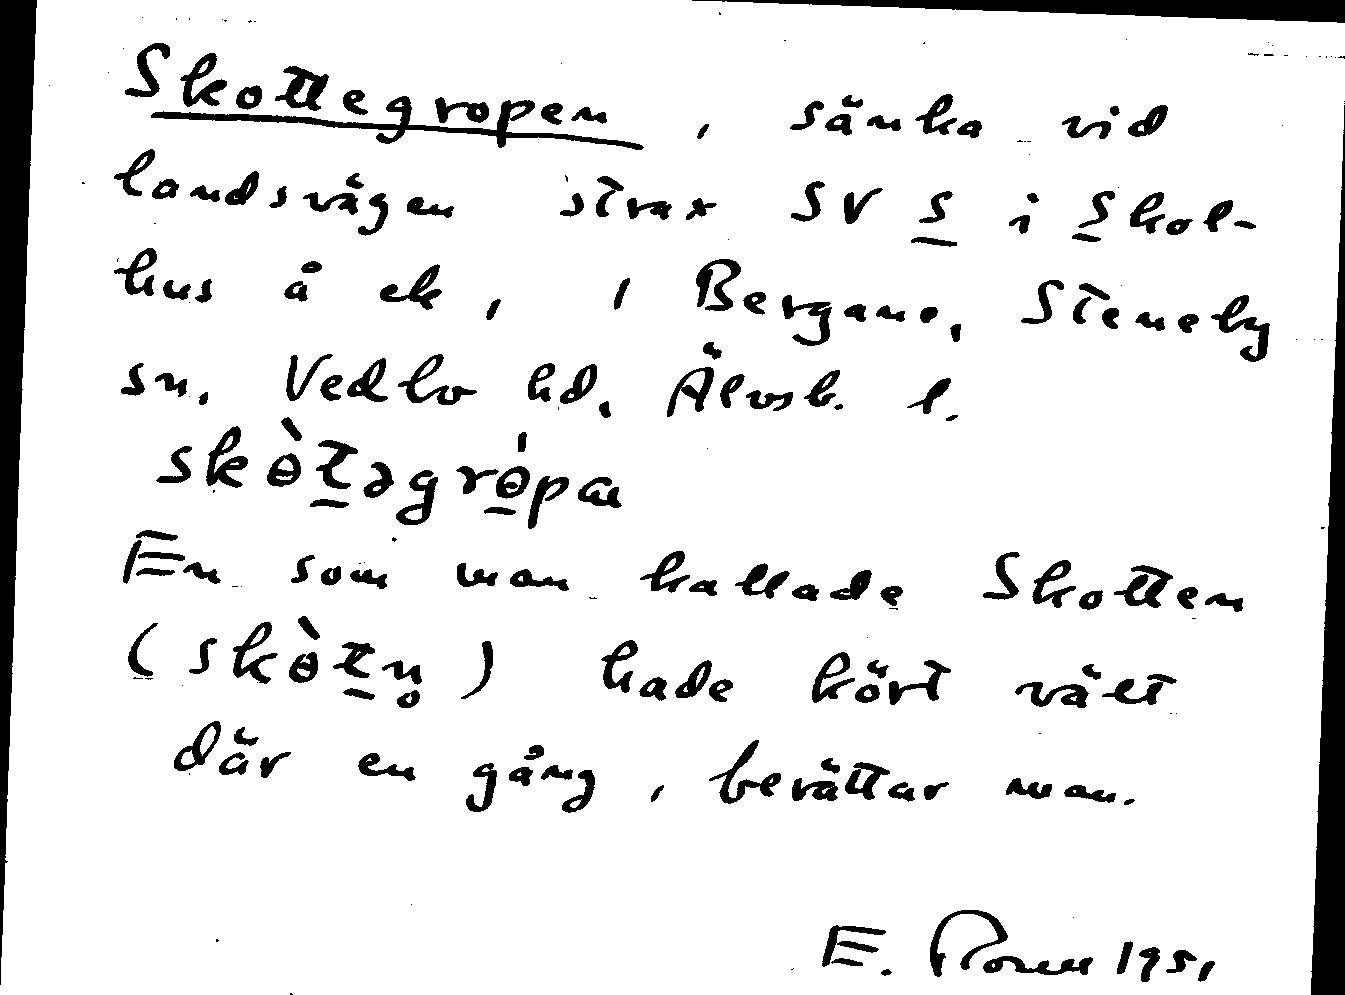 Skottegropen, sänka vid
landsvägen strax SV S i Skol-
hus å ek, i Bergane, Steneby
sn, Vedbo hd, Älvsb. l.
skɵ̀t̠əgrɵ̠́pæ
En som man kallade Skotten
(skɵ̀t̠n̥) hade kört vält
där en gång, berättar man.
E. 1951